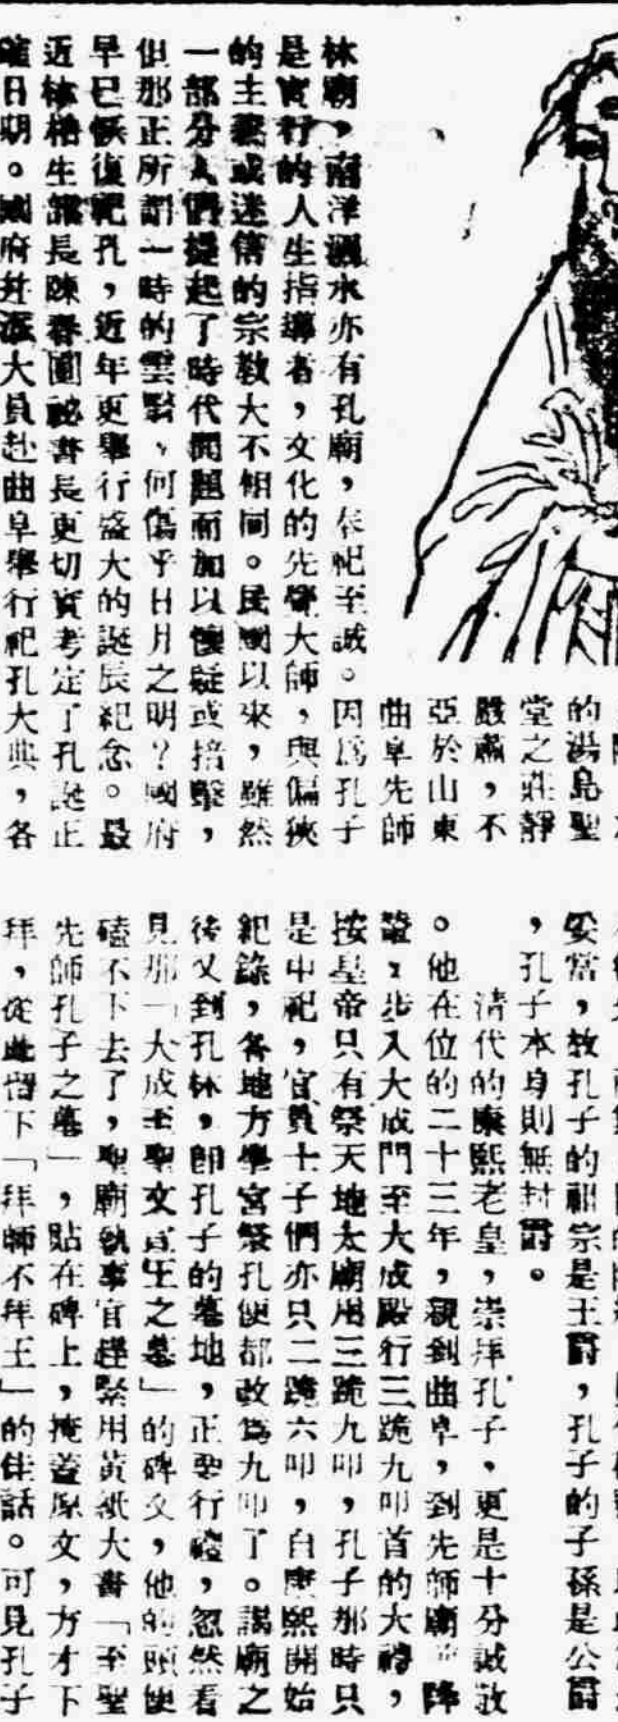 的湯島聖
堂之莊靜
嚴肅，不
亞於山東
曲阜先師
林廟，南洋泗水亦有孔廟，奉祀至誠。因爲孔子
是實行的人生指導者，文化的先聲大師，與偏狹
的主義或迷信的宗教大不相同。民國以來，雖然
一部分人們提起了時代問題而加以懷疑或掊擊，
但那正所謂一時的雲翳，何傷乎日月之明？國府
早已恢復祀孔，近年更舉行盛大的誕辰紀念。最
近林柏生部長陳春圃祕書長更切實考定了孔誕正
確日期。國府幷派大員赴曲阜舉行祀孔大典，各
妥當，故孔子的祖宗是王爵，孔子的子孫是公爵
，孔子本身則無封爵。
清代的康熙老皇，崇拜孔子，更是十分誠敬
。他在位的二十三年，親到曲阜，到先師廟 降
，步入大成門至大成殿行三跪九叩首的大禮，
按皇帝只有祭天地太廟用三跪九叩，孔子那時只
是中祀，官員士子們亦只二跪六叩，自康熙開始
紀錄，各地方學宮祭孔便都改爲九叩了。謁廟之
後又到孔林，卽孔子的墓地，正要行禮，忽然看
見那「大成至聖文宣王之墓」的碑文，他的頭便
磕不下去了，聖廟執事官趕緊用黃紙大書「至聖
先師孔子之墓」，貼在碑上，掩蓋原文，方才下
拜，從此留下「拜師不拜王」的佳話。可見孔子